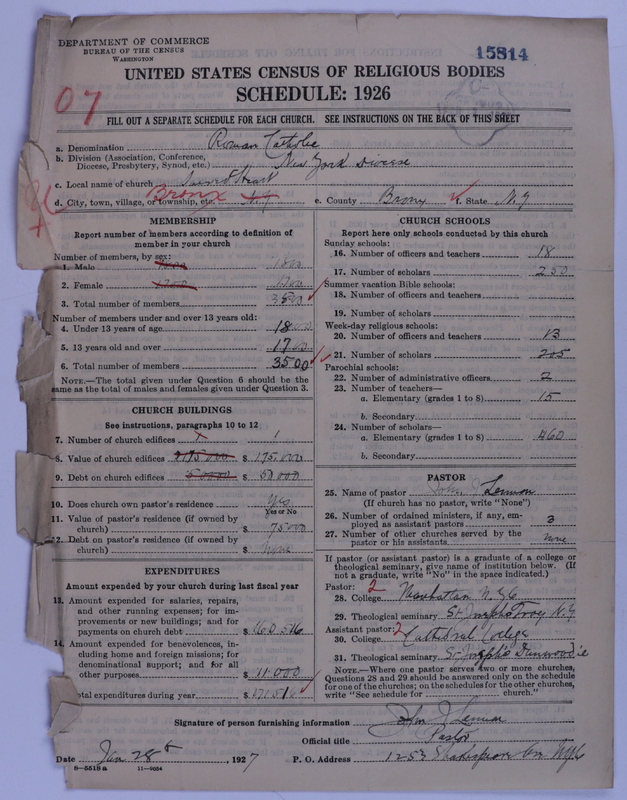 DEPARTMENT OF COMMERCE
BUREAU OF THE CENSUS
WASHINGTON
15814
UNITED STATES CENSUS OF RELIGIOUS BODIES
SCHEDULE: 1926
07
FILL OUT A SEPARATE SCHEDULE FOR EACH CHURCH. SEE INSTRUCTIONS ON THE BACK OF THIS SHEET
a. Denomination Roman Catholic
b. Division (Association, Conference,
Diocese, Presbytery, Synod, etc.) New York Diocese
c. Local name of church Sacred Heart
d. City, town, village, or township, etc. Bronx
e. County Bronx f. State N.Y
MEMBERSHIP
Report number of members according to definition of
member in your church
Number of members, by sex:
1. Male 1800
2. Female 1700
3. Total number of members 3500
Number of members under and over 13 years old:
4. Under 13 years of age 1800
5. 13 years old and over 1700
6. Total number of members 3500
NOTE.—The total given under Question 6 should be the
same as the total of males and females given under Question 3.
CHURCH BUILDINGS
See instructions, paragraphs 10 to 12
7. Number of church edifices 1
8. Value of church edifices $ 175000
9. Debt on church edifices $ 50000
10. Does church own pastor's residence Yes
Yes or No
11. Value of pastor's residence (if owned by
church) $ 75000
12. Debt on pastor's residence (if owned by
church) $ none
EXPENDITURES
Amount expended by your church during last fiscal year
13. Amount expended for salaries, repairs,
and other running expenses; for im-
provements or new buildings; and for
payments on church debt $ 160.516
14. Amount expended for benevolences, in-
cluding home and foreign missions; for
denominational support; and for all
other purposes $ 11.000
total expenditures during year $ 171.516
CHURCH SCHOOLS
Report here only schools conducted by this church
Sunday schools:
16. Number of officers and teachers 18
17. Number of scholars 250
Summer vacation Bible schools:
18. Number of officers and teachers
19. Number of scholars
Week-day religious schools:
20. Number of officers and teachers 13
21. Number of scholars 205
Parochial schools:
22. Number of administrative officers 2
23. Number of teachers—
a. Elementary (grades 1 to 8) 15
b. Secondary
24. Number of scholars—
a. Elementary (grades 1 to 8) 460
b. Secondary
PASTOR
25. Name of pastor John J Lennon
(If church has no pastor, write "None")
26. Number of ordained ministers, if any, em-
ployed as assistant pastors 3
27. Number of other churches served by the
pastor or his assistants none
If pastor (or assistant pastor) is a graduate of a college or
theological seminary, give name of institution below. (If
not a graduate, write "No" in the space indicated.)
Pastor: 2
28. College Manhattan N.Y.C
29. Theological seminary St Josephs Troy N.Y
Assistant pastor: 2
30. College Cathedral College
31. Theological seminary St Joseph's Dunwoodie
NOTE.—Where one pastor serves two or more churches,
Questions 28 and 29 should be answered only on the schedule
for one of the churches; on the schedules for the other churches,
write "See schedule for church."
Signature of person furnishing information John J Lennon
Official title Pastor
Date Jan 28th, 1927 P. O. Address 1253 Shakespeare Ave NYC
8—5518a 11—9034